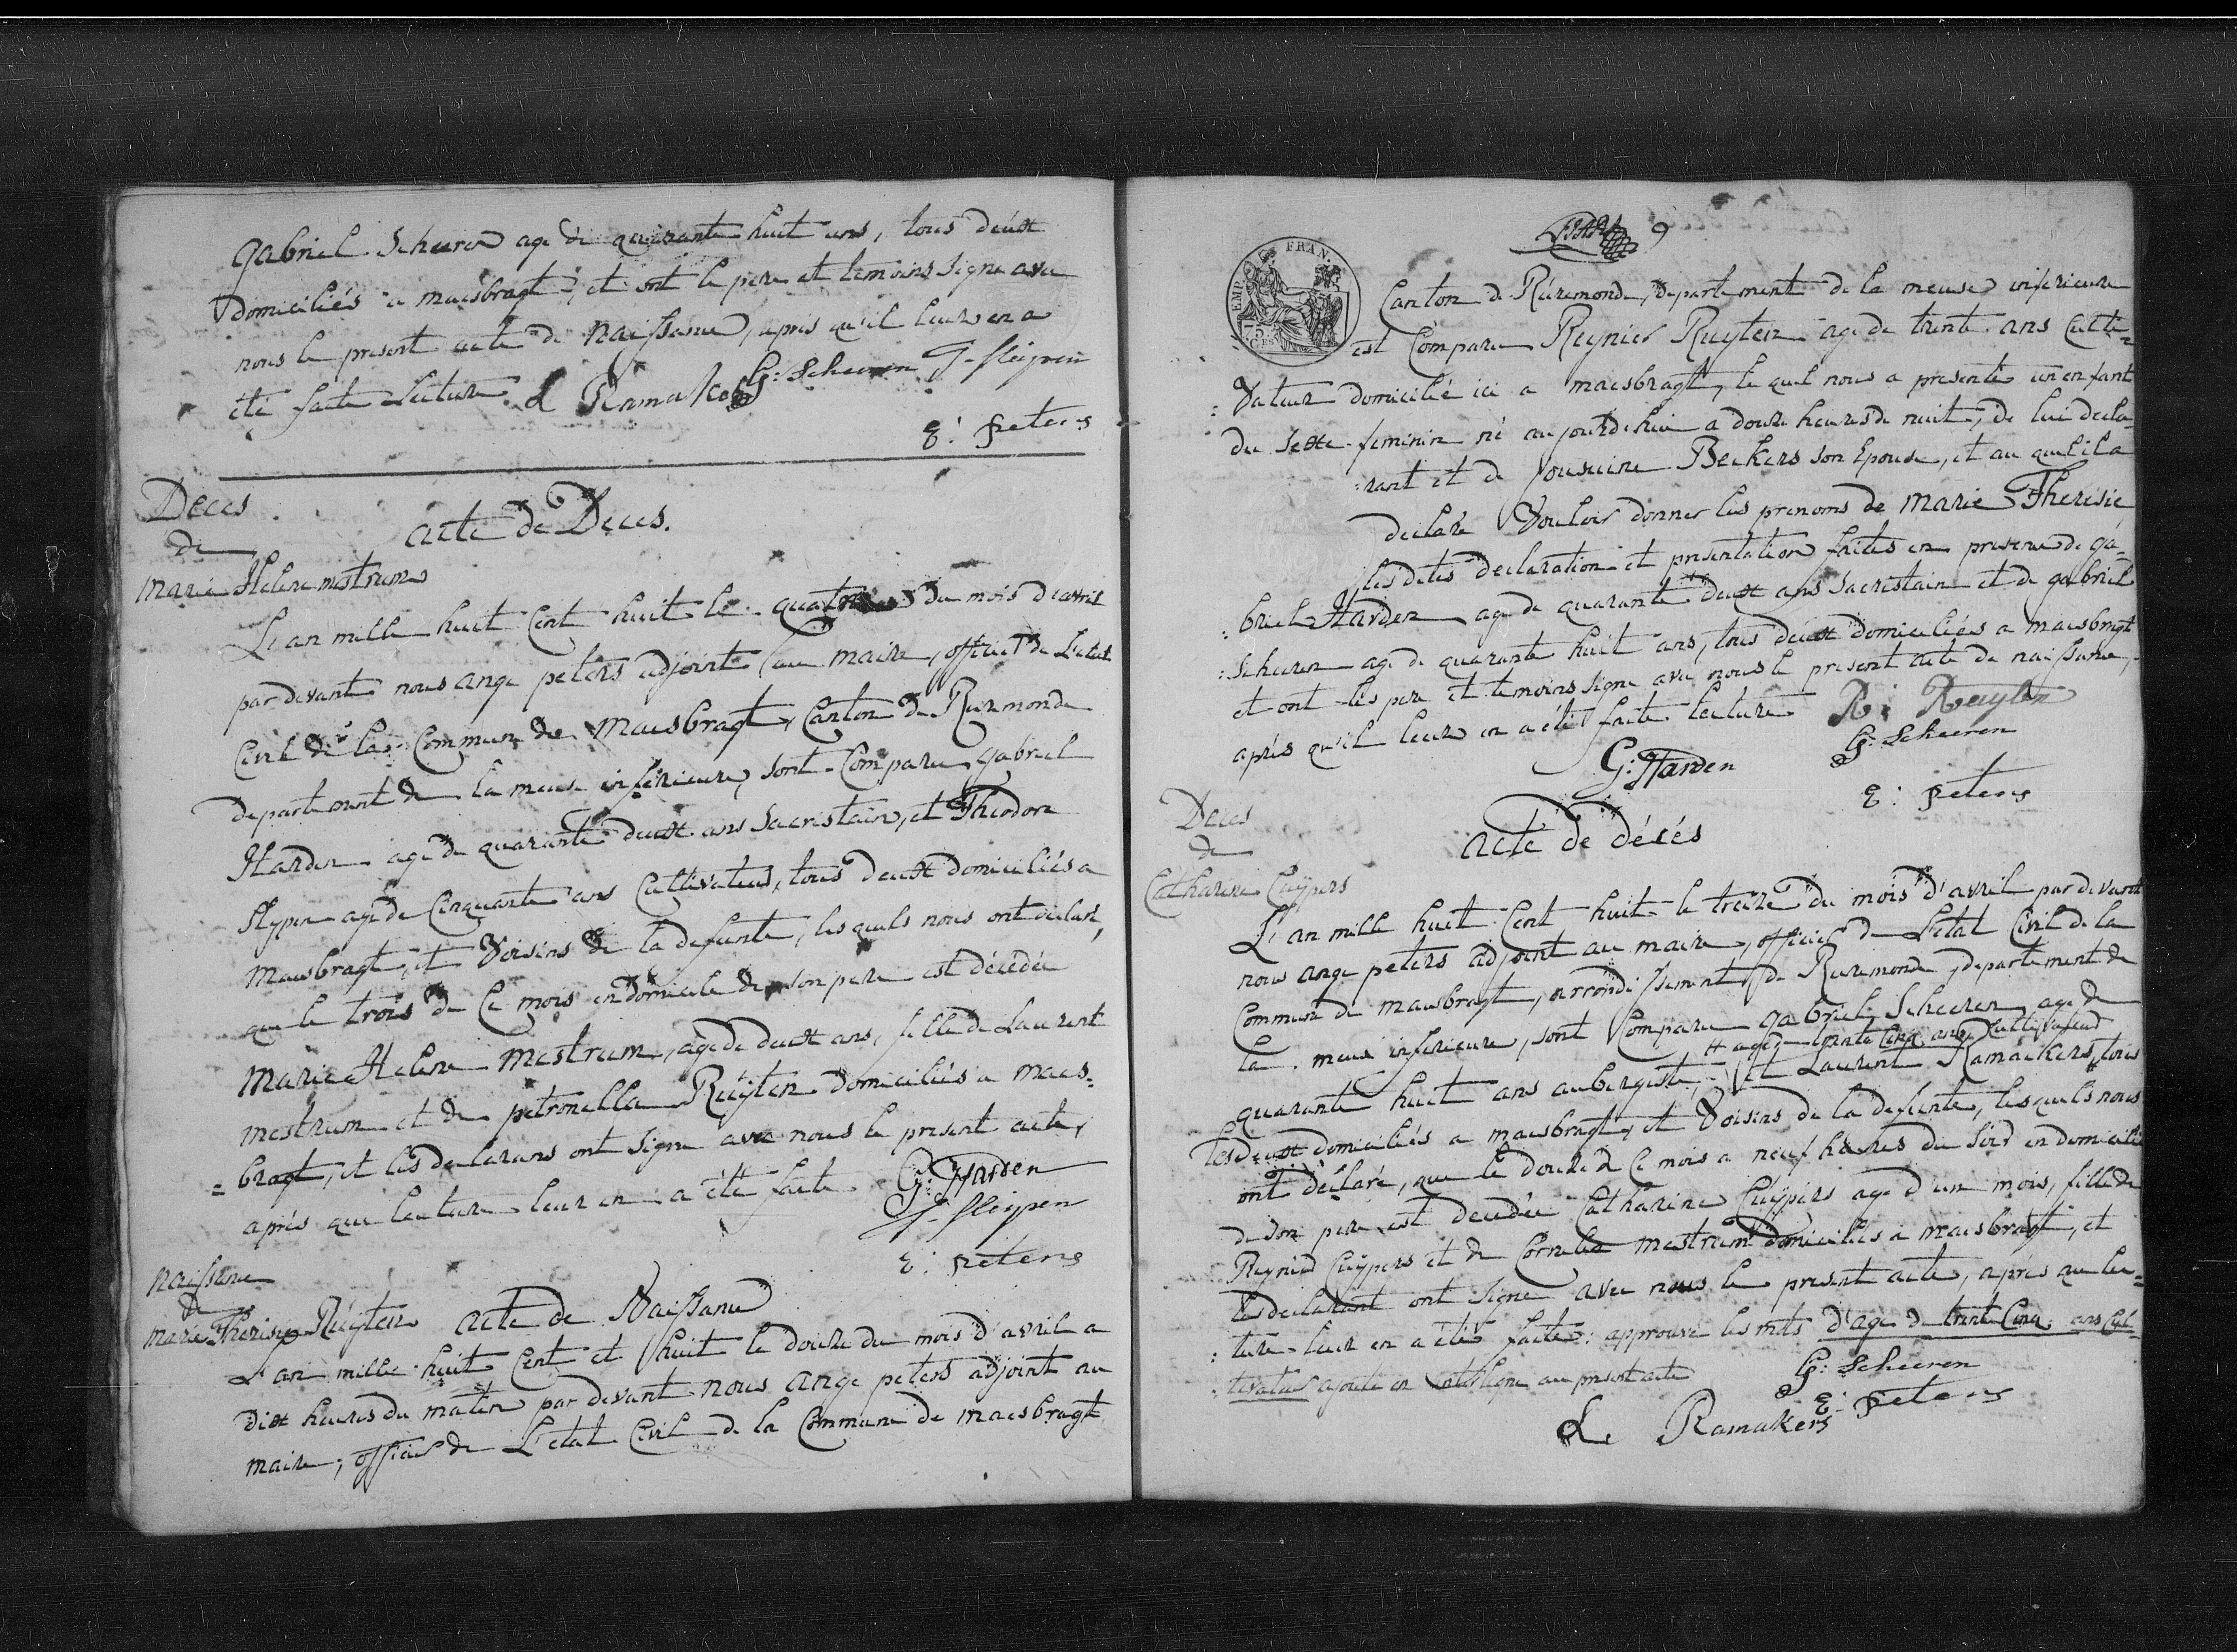 Gabriel Scheeren agé de quarante huit ans, tous deux
domiciliés a maesbragt, et ont le pere et temoins signe avec
nous le present acte de Naissance, apres qu'il leur en a
été faite lecture. L Ramakers G: Scheeren T. Sleijpen
E: peters
Deces
de
Marie Helene mestrum
acte de Deces.
L'an mille huit Cent huit le quatre du mois d'avril
par devant nous ange peters adjoint au maire, officier de L'etat
Civil de la Commune de Maesbragt, Canton de Ruremonde
departement de la meuse inferieure, sont Comparu gabriel
Harden agé de quarante deux ans Sacristain, et Theodore
Slypen agé de Cinquante ans Cultivateur, tous deux domiciliés a
Maesbragt, et Voisins de la defunte, les quels nous ont declaré,
que le trois de Ce mois en domicile de son pere est décédée
Marie Helene Mestrum, agé de deux ans, fille de Laurent
mestrum et de petronella Ruijten domiciliés a maes=
=bragt, et les declarans ont signe avec nous le present acte,
aprés que lecture leur en a été faite. G: Harden
T. Sleijpen
E: peters
Naissance
de
marie Therise Ruijten
acte de Naissance
L'an mille huit Cent et huit le douze du mois d'avril a
dix heures du matin par devant nous ange peters adjoint au
maire, officier de L'etat Civil de la Commune de maesbragt
9
EMP. FRAN.
75 CES
Canton de Ruremonde, departement de la meuse inferieure
est Comparu Reynier Ruyten agé de trente ans Culti=
=Vateur domicilié ici a maesbragt, le quel nous a presenté un enfant
du sexe feminin né aujourdehui a douze heures de nuit, de lui decla=
:rant et de Beckers son Epouse, et au quel il a
declaré Vouloir donner les prenoms de Marie Theresie
les dites declaration et presentation faites en presence de ga=
:briel Harden agé de quarante deux ans Sacristain et de gabriel
:Scheeren agé de quarante huit ans, tous deux domiciliées a maesbragt
et ont les pere et temoins signe avec nous le present acte de naissance,
aprés qu'il leur en a été faite lecture R: Ruyten
G: Harden G: Scheeren
E: peters
Deces
de
Catharine Cuijpers
acte de décés
L'an mille huit Cent huit le treize du mois d'avril par devant
nous ange peters adjoint au maire, officier de L'etat Civil de la
Commune de maesbragt, arrondissement de Ruremonde, departement de
la meuse inferieure, sont Comparu gabriel Scheeren agé de
agé de trente Cinq ans Cultivateur
quarante huit ans aubergiste, et Laurent Ramaekers, tous
les deux domiciliés a maesbragt, et Voisins de la defunte, lesquels nous
ont déclaré, que le douze de Ce mois a neuf heures du soir en domicile
de son pere est decédée Catharine Cuijpers agé d'un mois, fille de
Reynier Cuijpers et de Cornelia mestrum domiciliés a maesbragt, et
les declarant ont signe avec nous le present acte, aprés que lec=
:ture leur en a été faite: approuvé les mots d'age de trente Cinq ans Cul=
:tivateur ajouté en interligne au present acte
G: Scheeren
E: peters
L. Ramakers